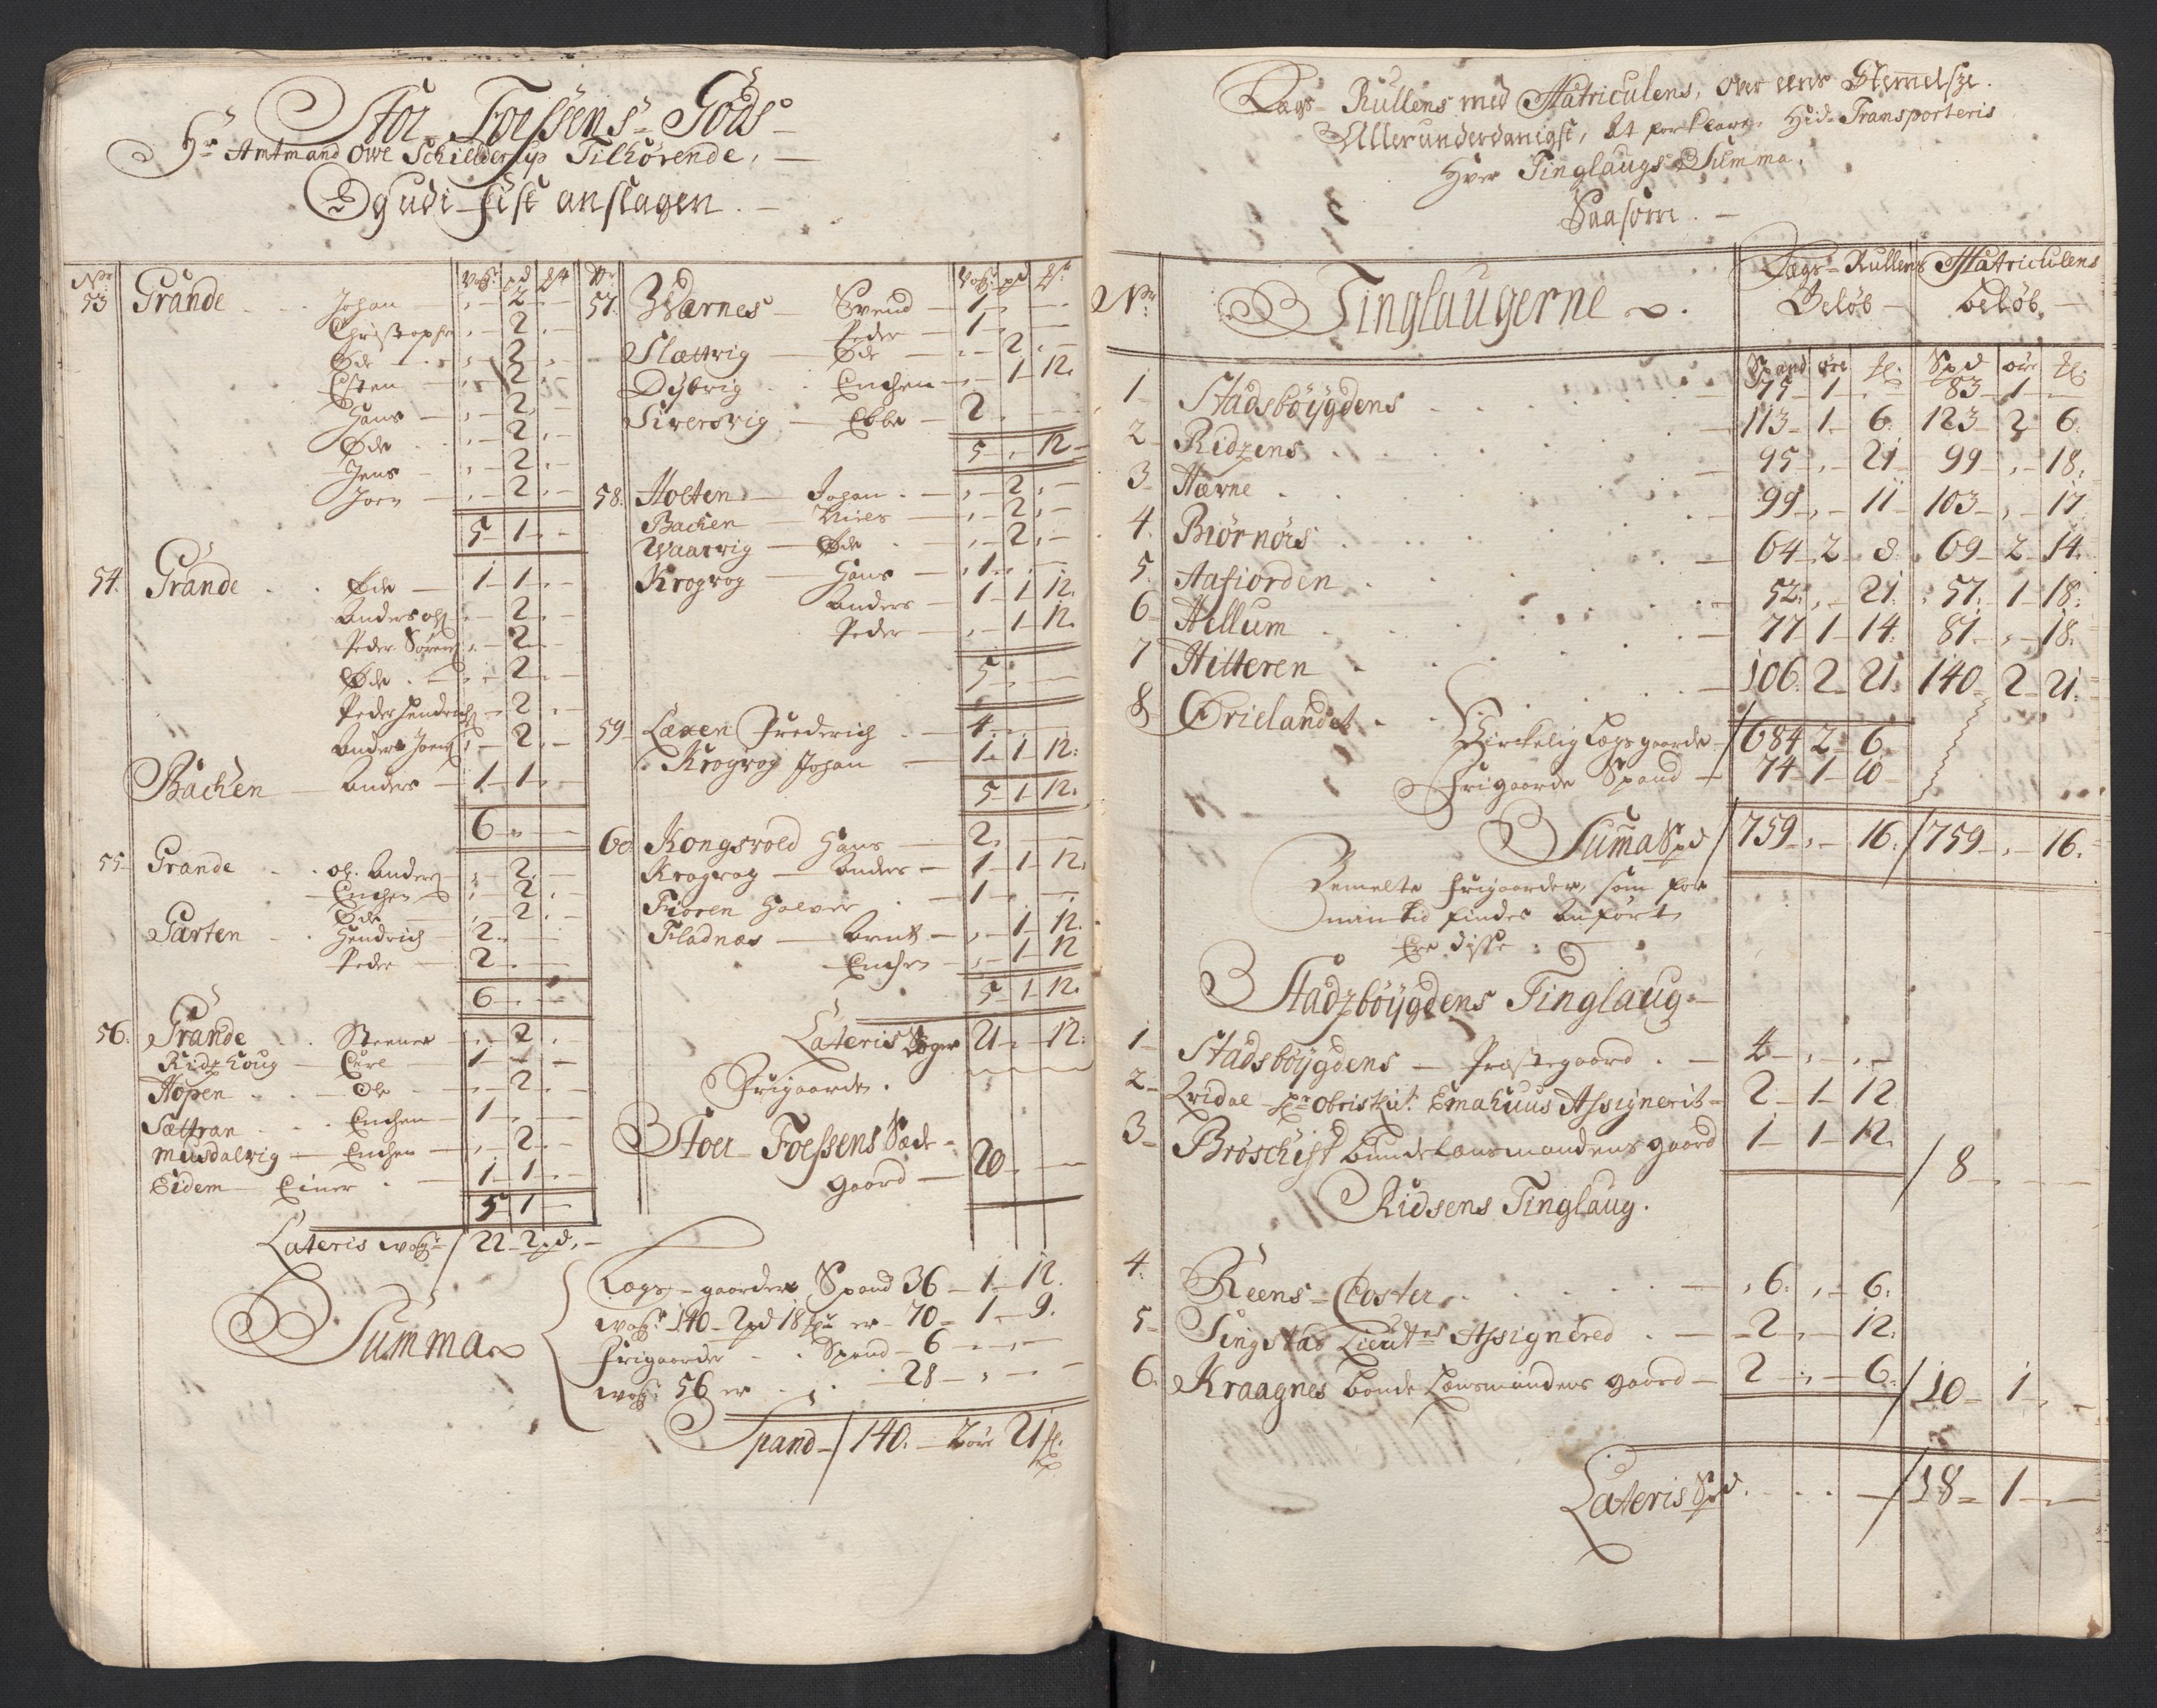 Stor-Foessens-Gods
Hr Amtmand Owe Schielderup Tilhørende,
Dgudi fist anslagen
No
53 Grande Johan , 2
Christopher , 2
Øde , 2
Esten , 2
Hans , 2
Øde , 2
Jens , 2
Joen , 2
5 1
54. Grande Øde 1 1
Anders Ols 2
Peder Sørens 2
Øde 2
Peder Hendrichs 2
Anders Joens 2
Bachen Anders 1 1
6
55 Grande Ol. Anders 2
Enchen 2
Øde 2
Garten Hendrich 2
Peder 2
6
56. Grande Steener 2
Ridzhoug Carl 1
Hopen Ole 2
Sættran Enchen 1
Musdalvig Enchen 2
Eidem Einer 1 1
5 1
Lateris wog 22 2 pd
57. Wærnes Svend 1
Peder 1
Slættvig Øde 2
Dybvig Enchen 1 12.
Siversvig Ebbe 2
5 12
58. Holten Johan 2
Bachen Niels 2
Waarvig Øde 2
Krogvog Hans 1
Anders 1 1 12.
Peder 1 12.
5
59 Læxen Frederich 4
Krogvog Johan 1 1 12:
5 1 12.
60 Kongsvold Hans 2
Krogvog Anders 1 1 12.
Fioren Halver 1
Fladnas Arnt 1 12.
Enchen 1 12
5 1 12.
Lateris Læger 21 12:
Frigaarde.
Stoer-Foessens Sæde-
gaard 20
Summa
Lægs-gaarder Spand 36 1 12.
wog 140 2 pd 18 er 70 1 9.
Frigaarder Spand 6
wog 56 er 28
Spand 140. 2 øre 21
Lægs-Rullens med Matriculens, over eens Stemmelsze.
Allerunderdanigst, At forklare, Hid Transporteris
Hver Tinglaugs Summa.
Saasom.
No Tinglaugerne
Lægs-Rullens Beløb
Matriculens beløb
Spand øre Spd øre
1 Stadsbøygdens 77 1 83 1
2 Ridzens 113 1 6. 123 2 6.
3 Hærne 95 21 99 18.
4. Biørnørs 99 11 103 17
5. Aafiorden 64 2 8. 69 2 14.
6 Hillum 52. 21. 57. 1 18.
7 Hitteren 77 1 14. 81 18.
8 Ørielandet 106. 2 21. 140 2 21.
Virckelig Lægsgaarder 684 2 6
Frigaarde Spand 74 1 10
Summa Spd 759 16. 759 16.
Bemelte Frigaarder, som for
min tid findes Anført
Ere disse:
Stadzbøygdens Tinglaug
1 Stadsbøygdens Præstegaard 4
2 Qridal hr Obristlut: Emahuus Assignerit 2 1 12
3 Brøschift bunde Lænsmandens gaard 1 1 12.
8
Ridsens Tinglaug.
4. Reens-Closter 6. 6.
5 Singstas Lieut Assignered 2 12.
6. Kraagnes bonde Lænsmandens gaard 2 6.
10 1
Lateris Spd. 18 1